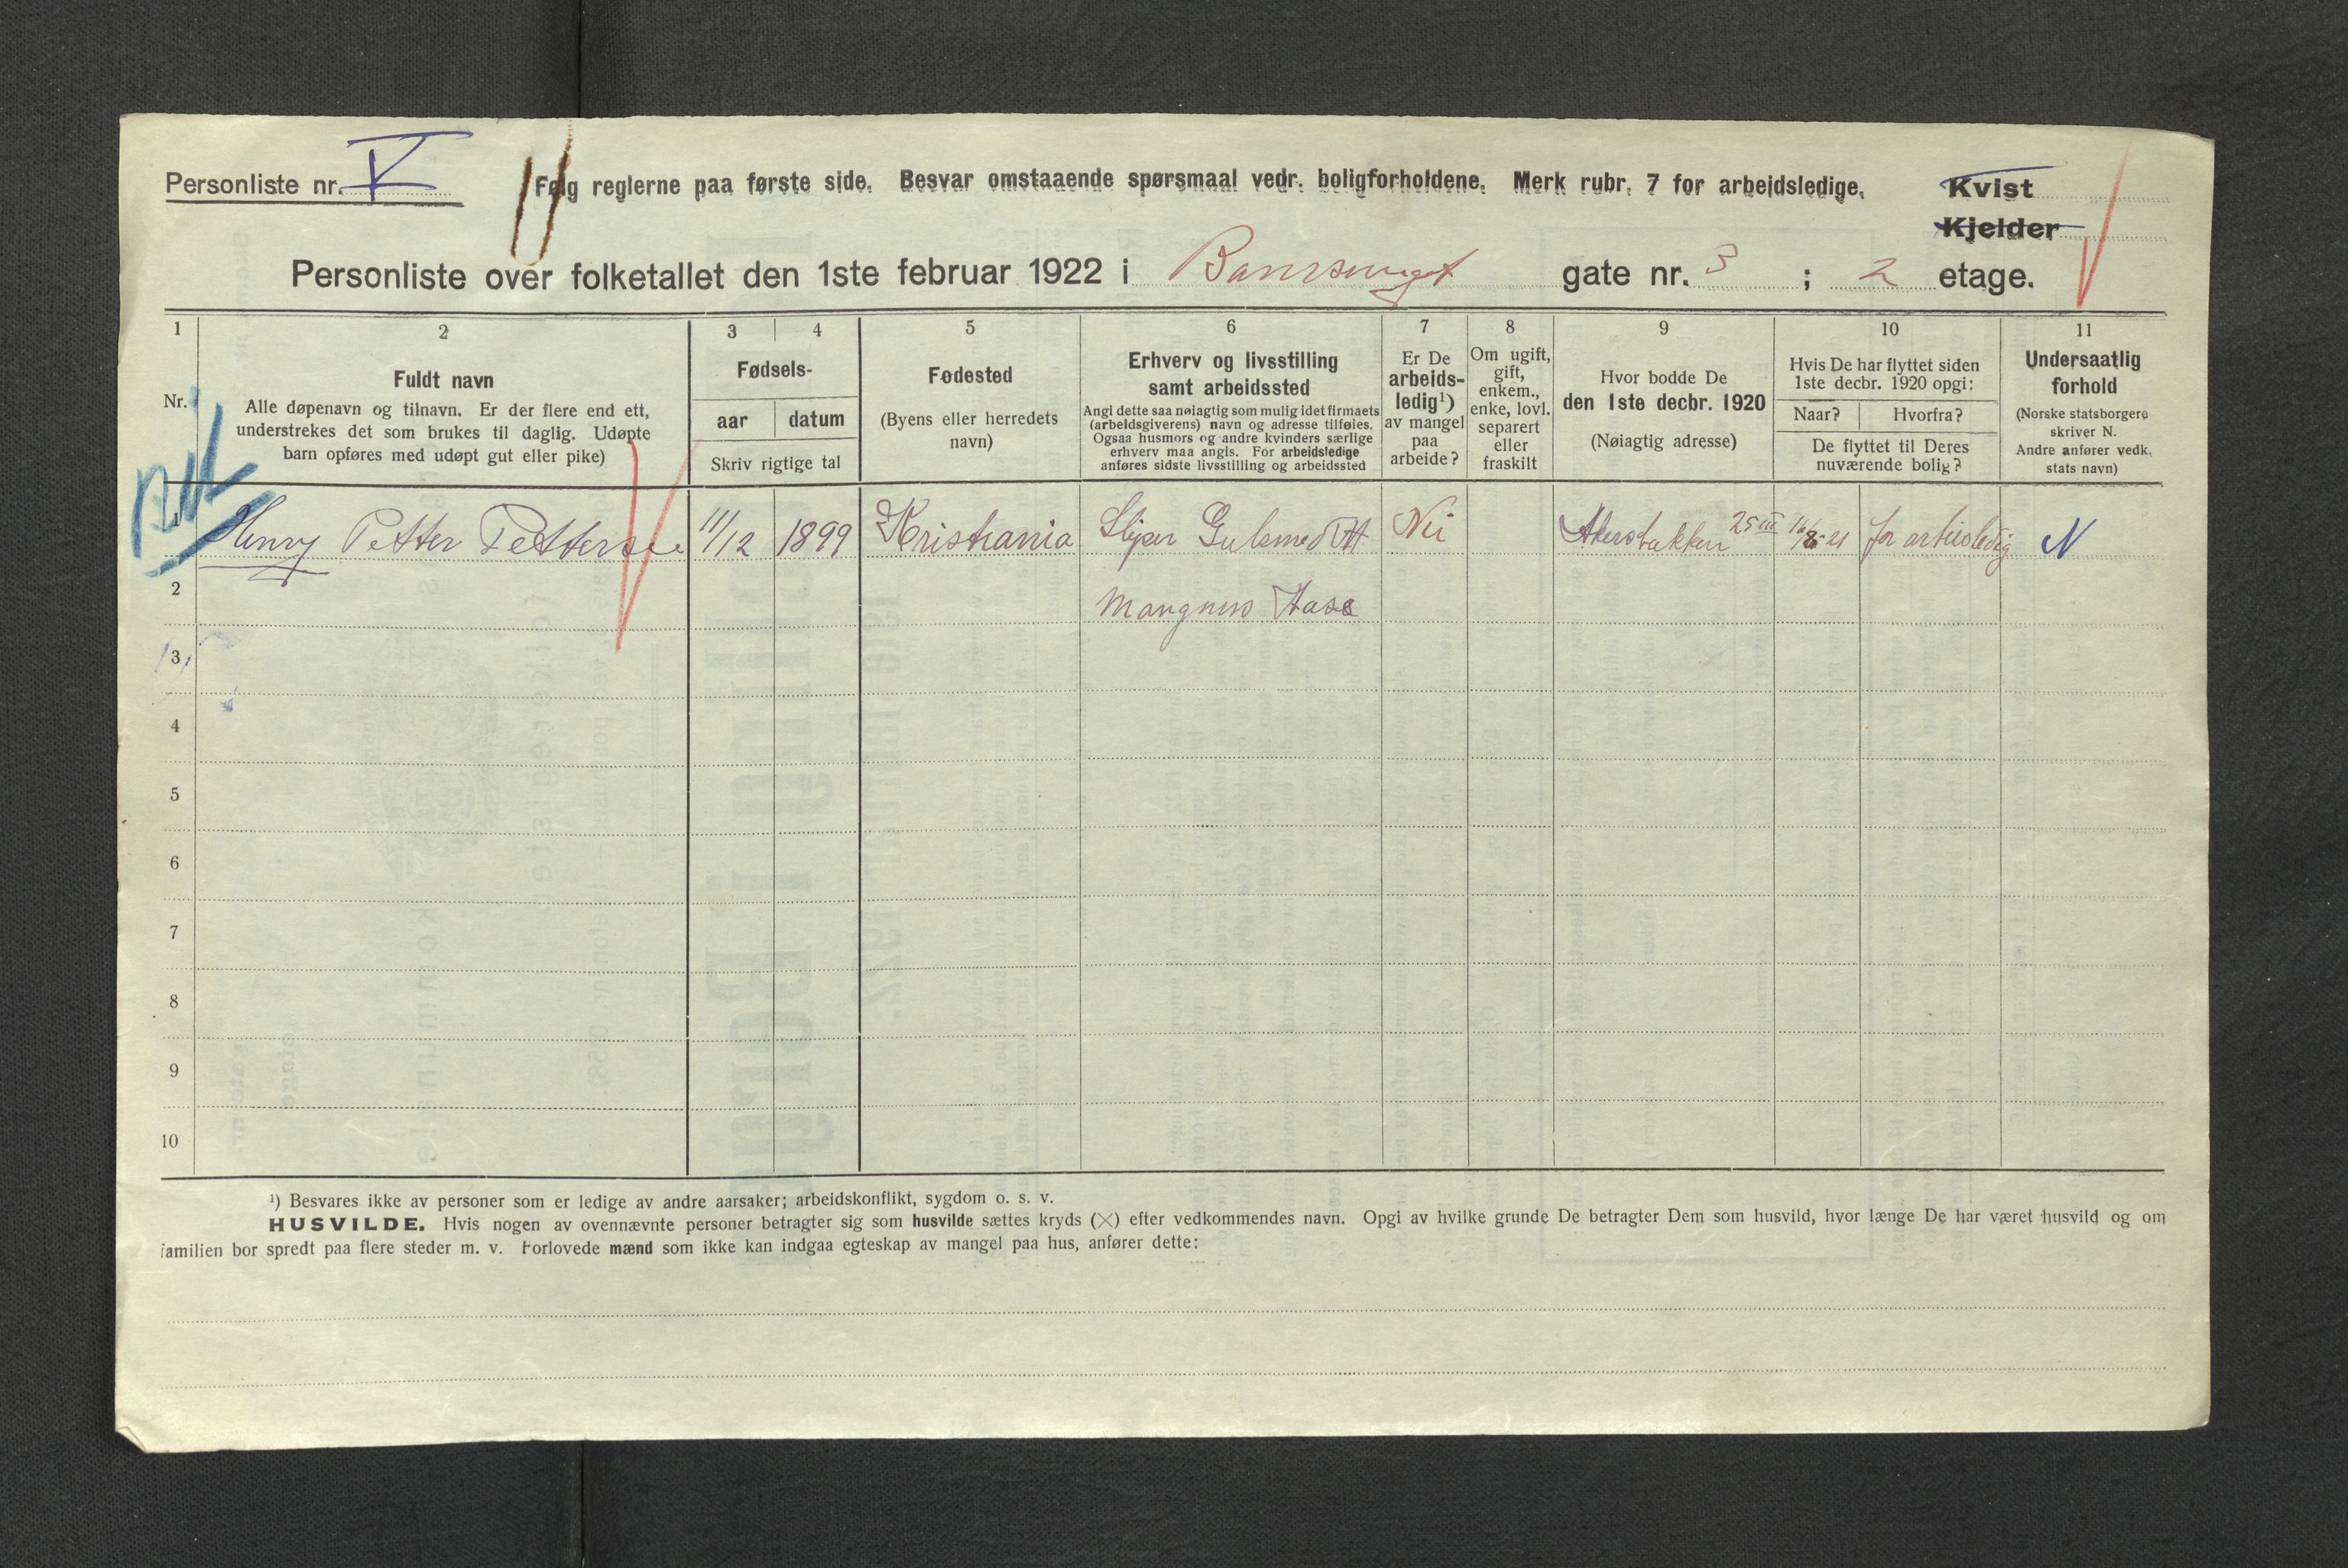 Personliste nr. V
Følg reglerne paa første side. Besvar omstaaende spørsmaal vedr. boligforholdene. Merk rubr. 7 for arbeidsledige.
Kvist
Kjelder
Personliste over folketallet den 1ste februar 1922 i gate nr. 3 ; 2 etage.
1 2 3 4 5 6 7 8 9 10 11
Nr.
Fuldt navn
Alle døpenavn og tilnavn. Er der flere end ett,
understrekes det som brukes til daglig. Udøpte
barn opføres med udøpt gut eller pike)
Fødsels-
aar datum
Skriv rigtige tal
Fødested
(Byens eller herredets
navn)
Erhverv og livsstilling
samt arbeidssted
Angi dette saa nøiagtig som mulig idet firmaets
(arbeidsgiverens) navn og adresse tilføies.
Ogsaa husmors og andre kvinders særlige
erhverv maa angis. For arbeidsledige
anføres sidste livsstilling og arbeidssted
Er De
arbeids-
ledig¹)
av mangel
paa
arbeide?
Om ugift,
gift,
enkem.,
enke, lovl.
separert
eller
fraskilt
Hvor bodde De
den 1ste decbr. 1920
(Nøiagtig adresse)
Hvis De har flyttet siden
1ste decbr. 1920 opgi:
Naar? Hvorfra?
De flyttet til Deres
nuværende bolig?
Undersaatlig
forhold
(Norske statsborgere
skriver N.
Andre anfører vedk.
stats navn)
1 Henry Petter Pettersen 11/12 1899 Kristiania N
2
3
4
5
6
7
8
9
10
¹) Besvares ikke av personer som er ledige av andre aarsaker; arbeidskonflikt, sygdom o. s. v.
HUSVILDE. Hvis nogen av ovennævnte personer betragter sig som husvilde sættes kryds (×) efter vedkommendes navn. Opgi av hvilke grunde De betragter Dem som husvild, hvor længe De har været husvild og om
familien bor spredt paa flere steder m. v. Forlovede mænd som ikke kan indgaa egteskap av mangel paa hus, anfører dette: